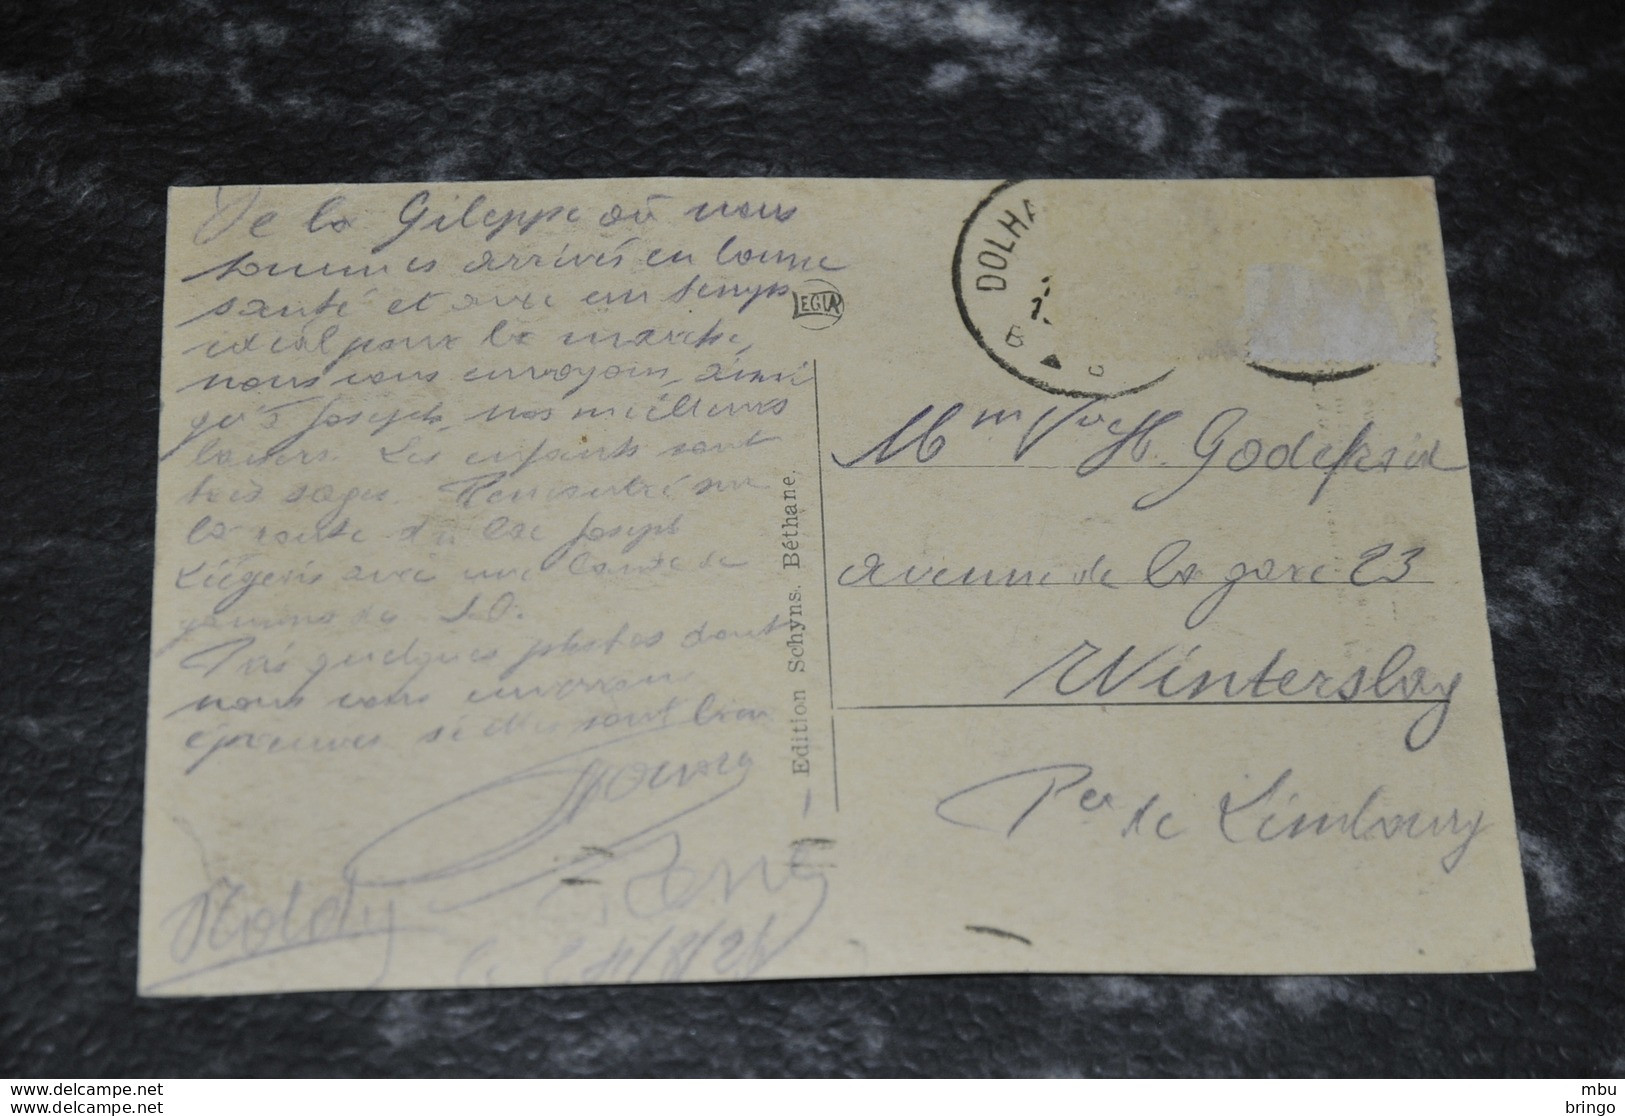 De la Gileppe où nous
sommes arrivés en bonne
santé et avec un temps
idéal pour la marche,
nous vous envoyons, ainsi
qu'à Joseph, nos meilleurs
baisers. Les enfants sont
très sages. Rencontré sur
la route du lac Joseph
Liégeois avec une bande de
gamins de
Pris quelques photos dont
nous vous enverrons
épreuves si elles sont bien
René
Noldy
LEGIA
Edition Schyns. Béthane.
DOLHA
B
Mme Vve H. Godefroid
avenue de la gare 23
Winterslag
Pce de Limbourg
delcampe.com
delcampe.com
mbu
bringo